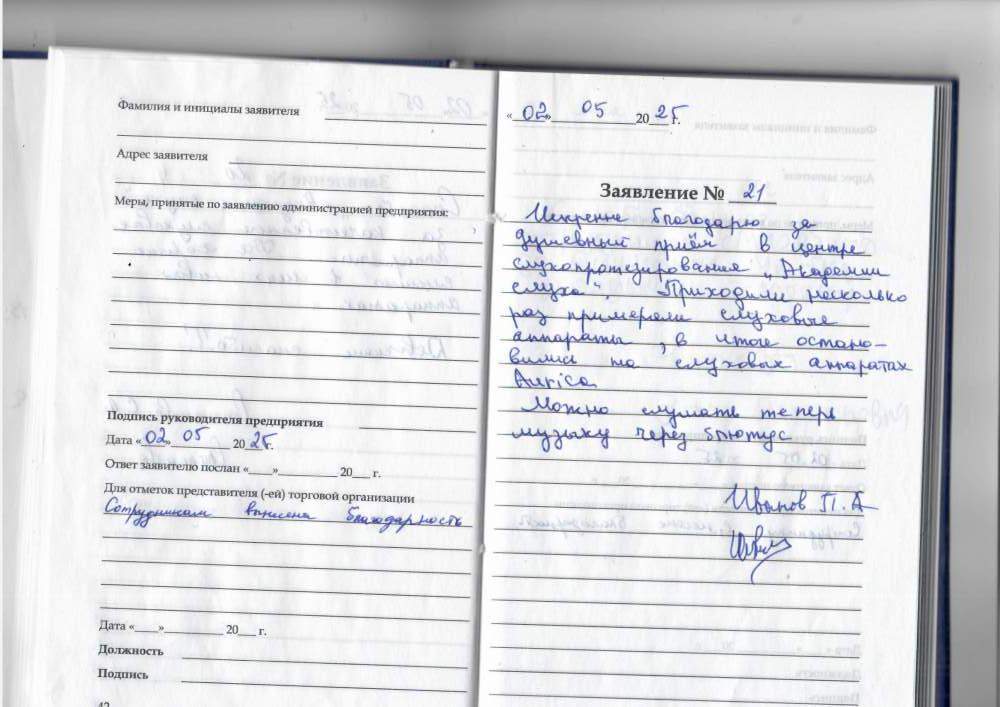 Фамилия и инициалы заявителя
Адрес заявителя
Меры, принятые по заявлению администрацией предприятия:
Подпись руководителя предприятия
Дата «02» 05 2025г.
Ответ заявителю послан «___»_________ 20___ г.
Для отметок представителя (-ей) торговой организации
Сотрудникам вынесена благодарность
Дата «___»_________ 20___ г.
Должность
Подпись
42
«02» 05 2025г.
Заявление № 21
Искренне благодарю за
душевный приём в центре
слухопротезирования „Академии
слуха". Приходили несколько
раз примеряли слуховые
аппараты, в итоге остано-
вились на слуховых аппаратах
Aurica.
Можно слушать теперь
музыку через блютус
Иванов П.А